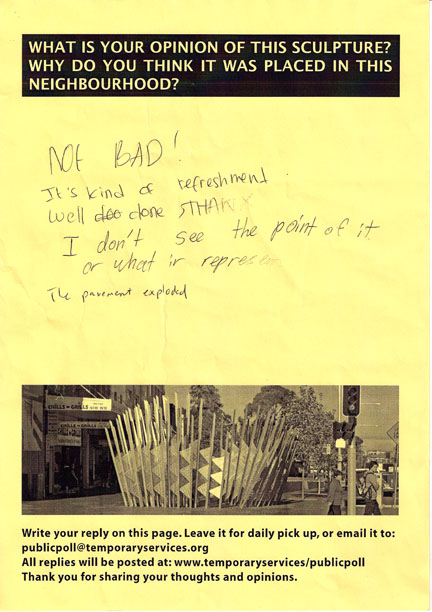 WHAT IS YOUR OPINION OF THIS SCULPTURE?
WHY DO YOU THINK IT WAS PLACED IN THIS
NEIGHBOURHOOD?
NOT BAD!
It's kind of refreshment.
well done
I don't see the point of it
or what ir represen
The pavement exploded
GRILLS
Write your reply on this page. Leave it for daily pick up, or email it to:
publicpoll@temporaryservices.org
All replies will be posted at: www.temporaryservices/publicpoll
Thank you for sharing your thoughts and opinions.